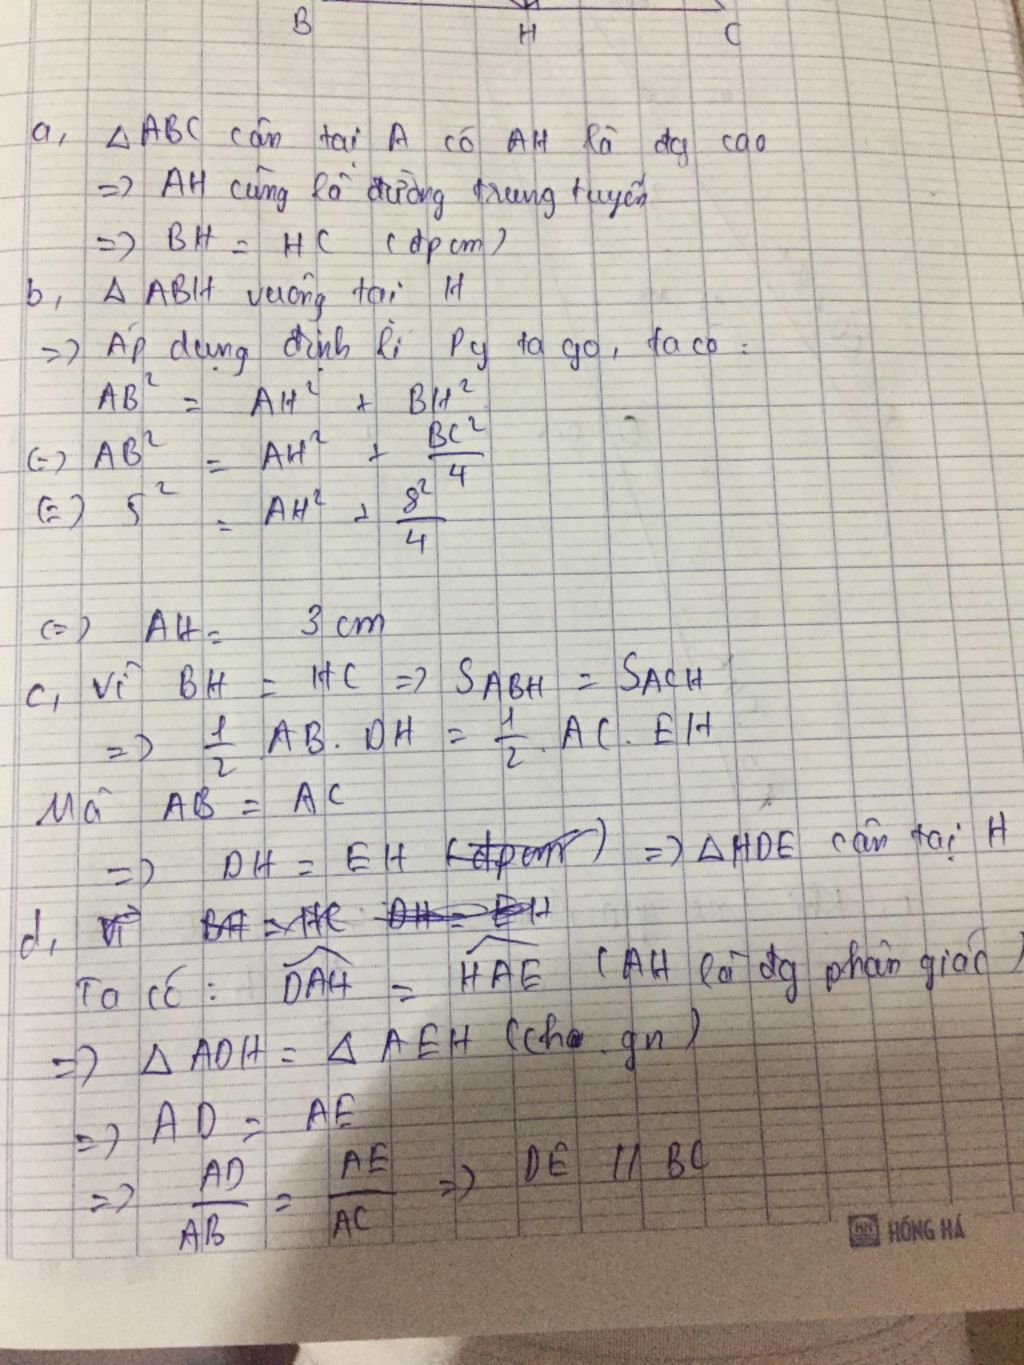 B H C
a, △ABC cân tại A có AH là đg cao
=> AH cũng là đường trung tuyến
=> BH = HC (đpcm)
b, △ ABH vuông tại H
=> Áp dụng định lí Py ta go, ta có :
AB² = AH² + BH²
(=) AB² = AH² + BC²/4
(=) 5² = AH² + 8²/4
(=) AH = 3 cm
c, Vì BH = HC => SABH = SACH
=> 1/2 AB. DH = 1/2. AC. EH
Mà AB = AC
=> DH = EH (đpcm) => △HDE cân tại H
d, Vì BH = HC DH = EH
Ta có : DAH = HAE (AH là đg phân giác)
=> △ ADH = △ AEH (ch. gn)
=> AD = AE
=> AD/AB = AE/AC => DE // BC
HH HỒNG HÀ